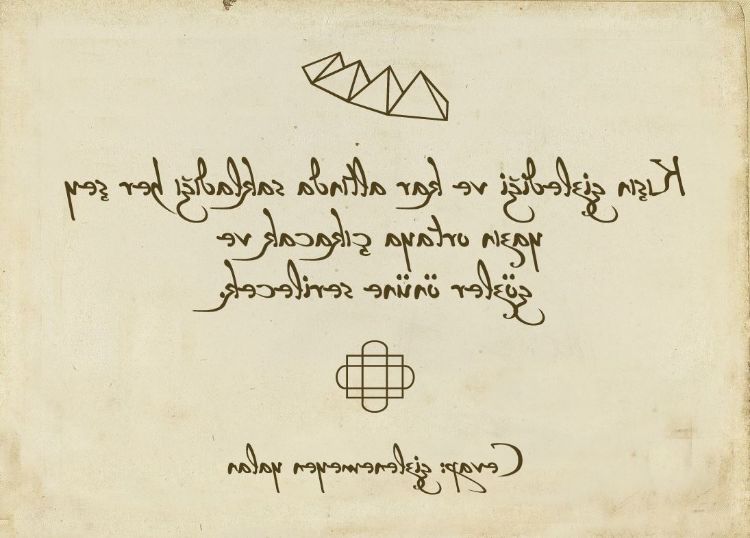 Kışın gizlediği ve kar altında sakladığı her şey
yazın ortaya çıkacak ve
gözler önüne serilecek.
Cevap: gizlenemeyen yalan